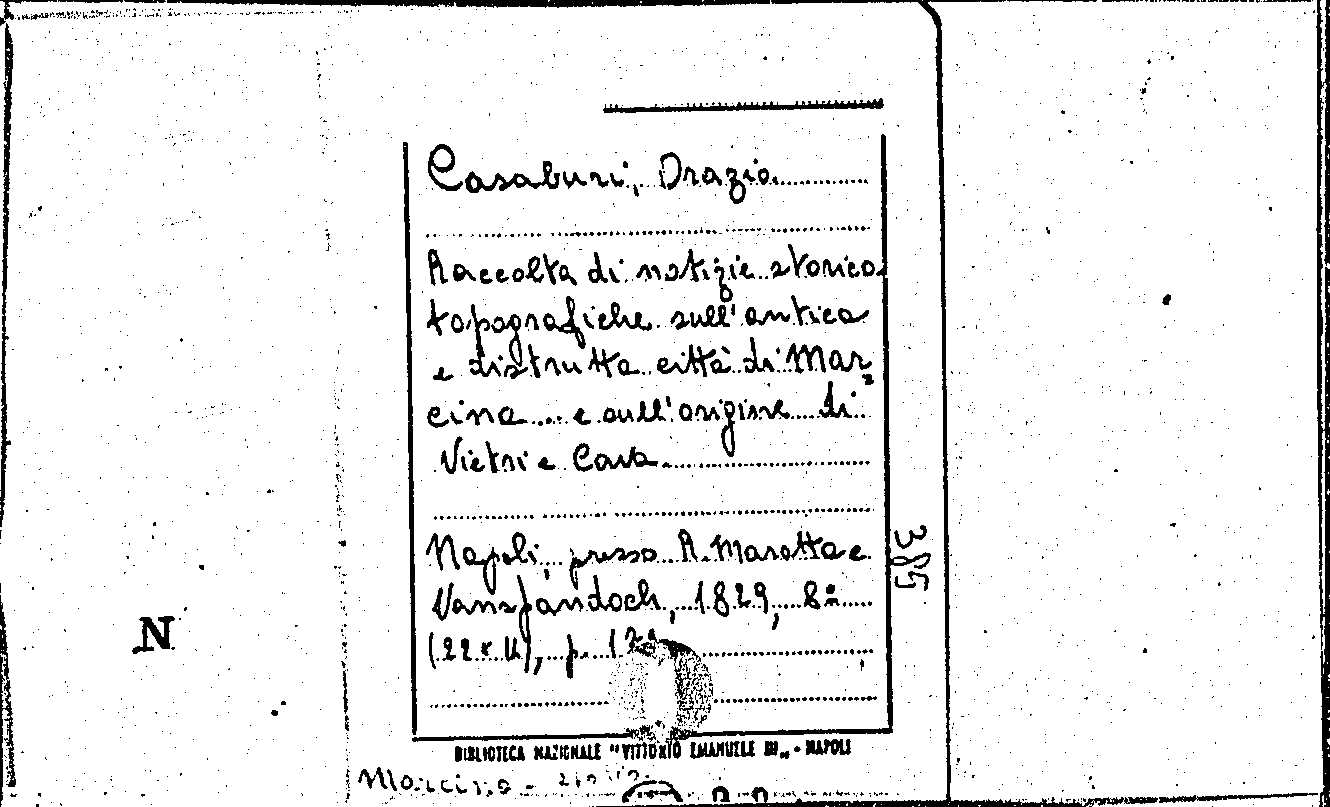 Casaburi, Orazio
Raccolta di notizie storico
topografiche sull'antica
e distrutta città di Mar=
cina... e sull'origine di
Vietri e Cava.
Napoli, presso R. Marotta e
Vanspandoch, 1829, 8º
(22 x 14), p.
385
N
BIBLIOTECA NAZIONALE "VITTORIO EMANUELE III„ - NAPOLI
Marcina -